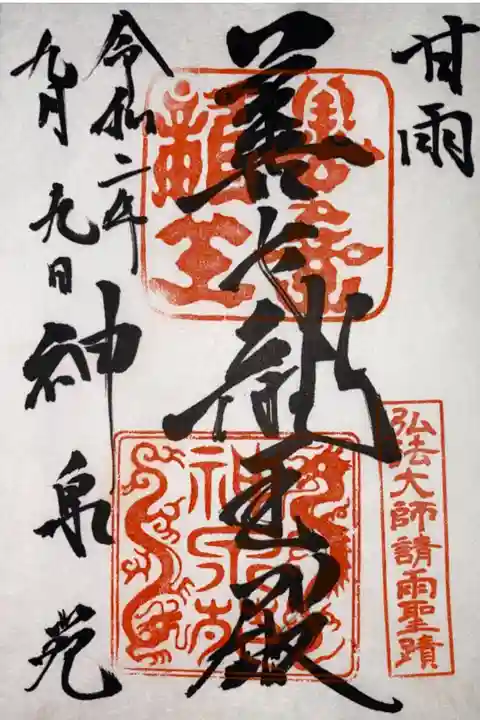 甘雨
弘法大師請雨聖蹟
善女龍王殿
令和二年
九月九日
神泉苑
善女
龍王
神泉苑